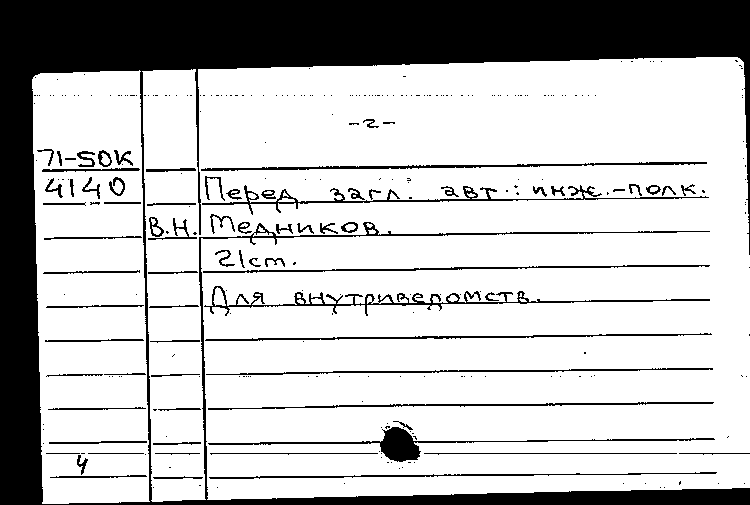 -2-
71-SOK
4140 Перед загл. авт.: инж.-полк.
В.Н. Медников.
21ст.
Для внутриведомств.
4